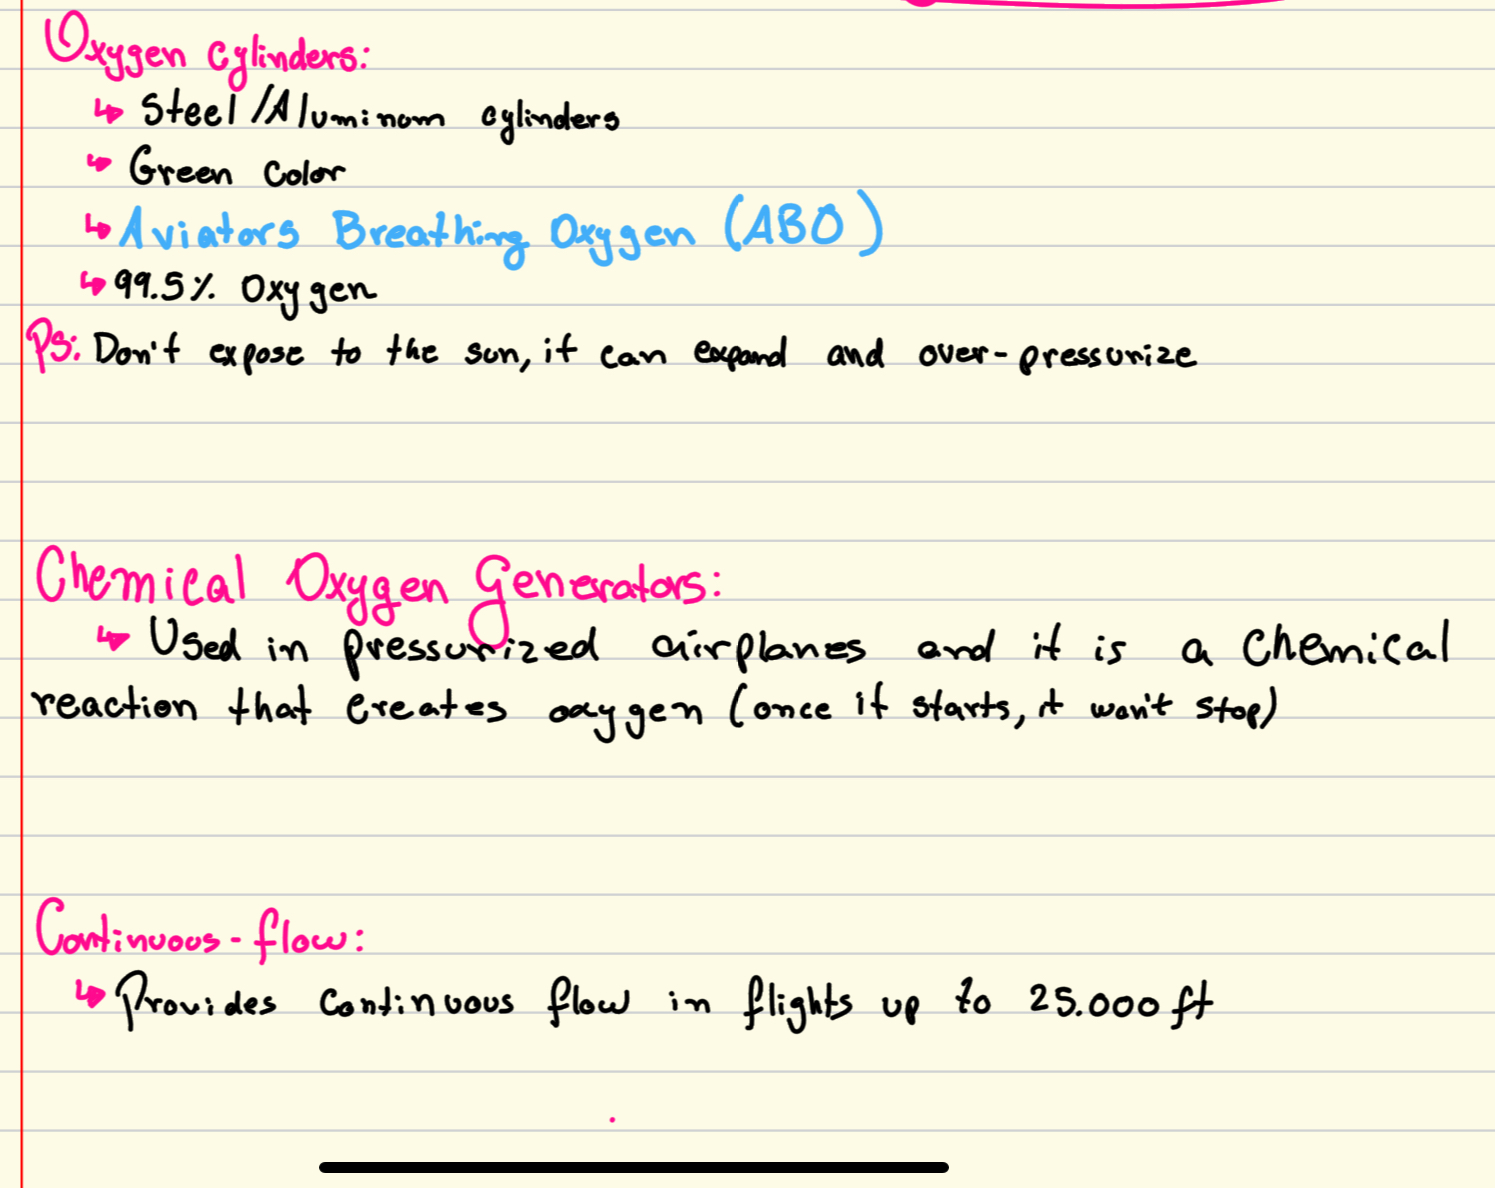 Oxygen cylinders:
↳ Steel/Aluminum cylinders
↳ Green Color
↳ Aviators Breathing Oxygen (ABO)
↳ 99.5% Oxygen
PS: Don't expose to the sun, it can expand and over-pressurize
Chemical Oxygen Generators:
↳ Used in pressurized airplanes and it is a Chemical
reaction that creates oxygen (once it starts, it won't stop)
Continuous-flow:
↳ Provides continuous flow in flights up to 25.000 ft